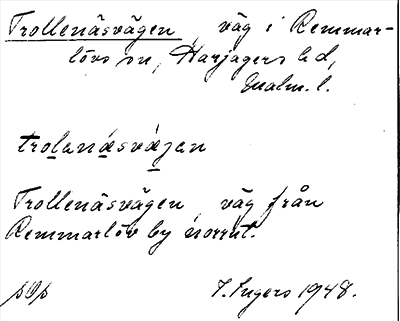 Trollenäsvägen, väg i Remmar-
lövs sn, Harjagers hd,
Malm. l.
trolanæsvægan
Trollenäsvägen väg från
Remmarlöv by norrut.
pOp I. Ingers 1948.